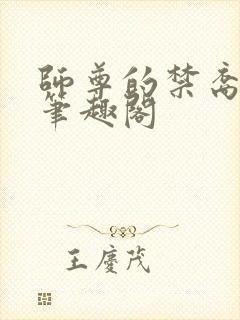 師尊的禁脔
筆趣閣
王慶茂